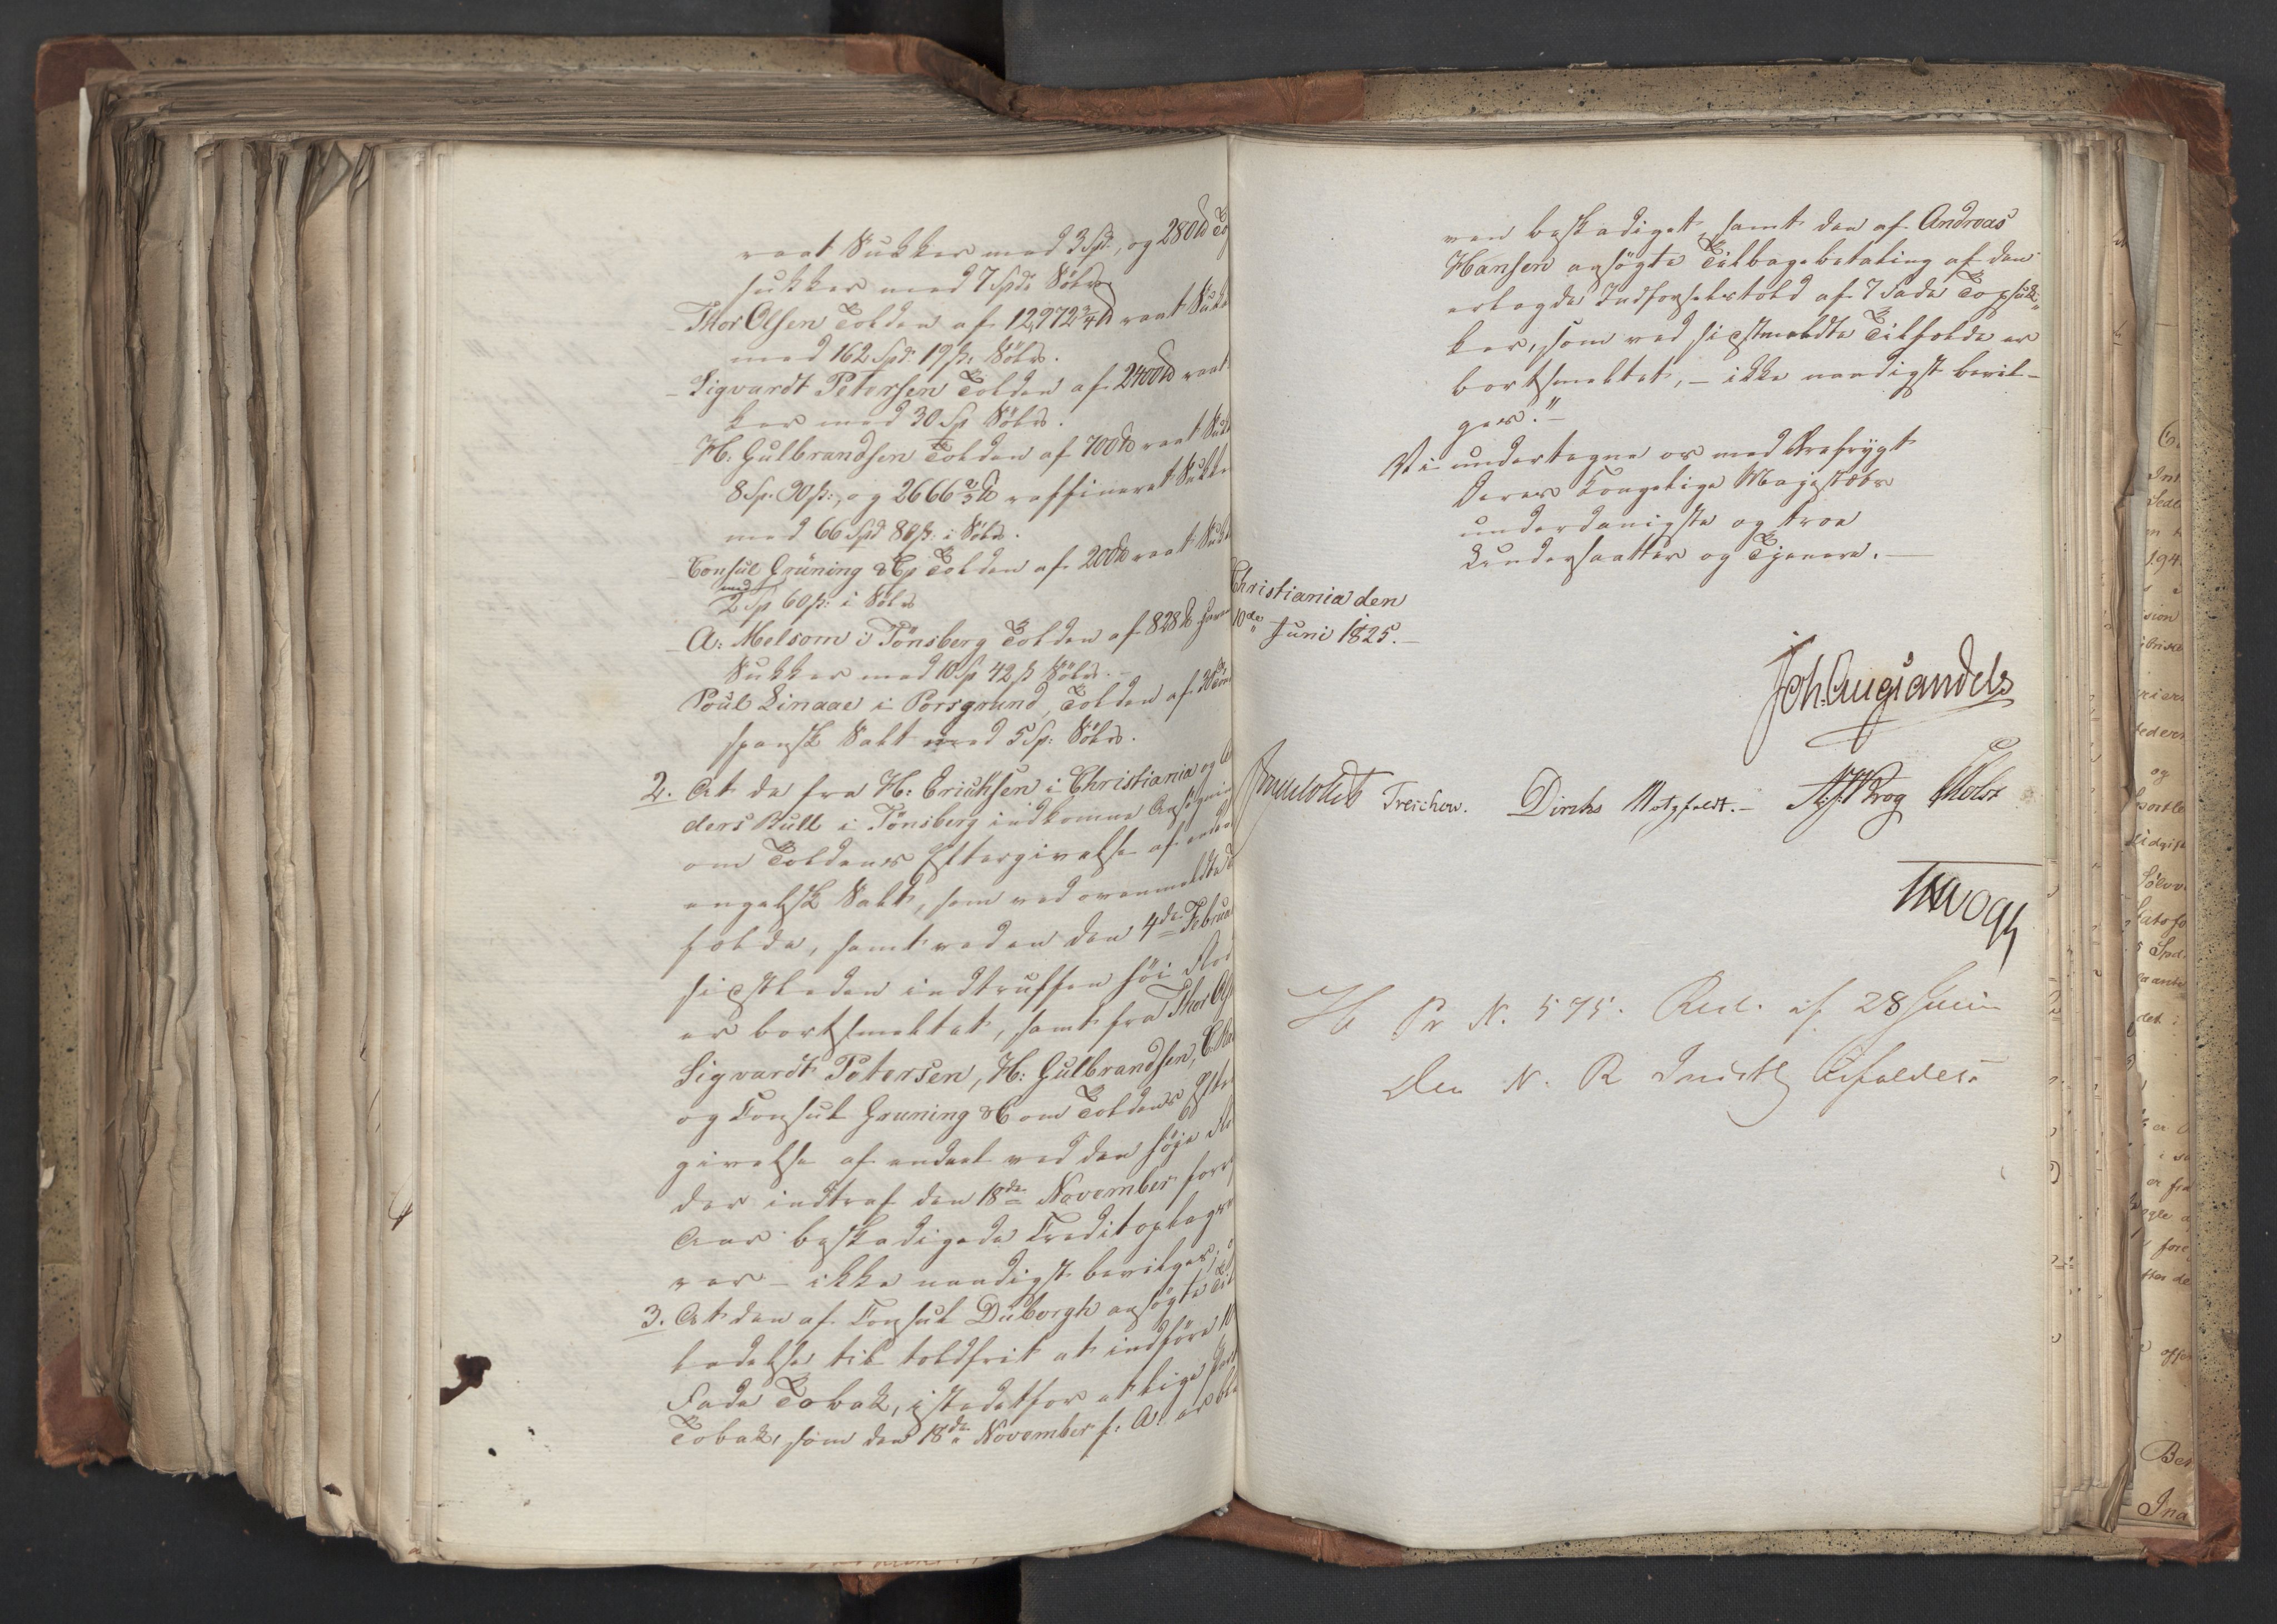 raat Sukker med 3 Spd, og 280 ℔ To
sukker med 7 Spd. Sølv.
- Thor Olsen Tolden af 12,972¾ ℔ raat Sukk
med 162 Spd. 19 ß. Sølv.
- Sigvardt Petersen Tolden af 2400 ℔ raat
ker med 30 Sp Sølv.
- H: Gulbrandsen Tolden af 700 ℔ raat Sukk
8 Sp. 90 ß:, og 2666⅔ ℔ raffineret Sukke
med 66 Spd 80 ß: i Sølv.
- Consul Grüning & Cp Tolden af 200 ℔ raat Sukk
med 2 Sp 60 ß: i Sølv
- A: Melsom i Tönsberg Tolden af 828 ℔
Sukker med 10 Sp 42 ß Sølv.
Poul Linaae i Porsgrund, Tolden af 30 Tøn
spansk Salt med 5 Sp: Sølv.
2. At de fra H: Erichsen i Christiania og
ders Bull i Tönsberg indkomne Ansøgnin
om Toldens Eftergivelse af
engelsk Salt, som ved ovenmeldte
folde, samt ved en den 4de Februa
sidstleden indtruffen høi Flod
er bortsmeltet, samt fra Thor Ols
Sigvardt Petersen, H: Gulbrandsen,
og Consul Gruning & C om Toldens Efter
givelse af endeel ved den høje Flo
der indtraf den 18de November forri
Aar beskadigede Creditoplagsva
rer - ikke naadigst bevilges,
3. At den af Consul Duborgh ansøgte Til
ladelse til toldfrit at indføre 10
Fade Tobak, istedetfor et lige
Tobak, som den 18de November f: A: er ble
ven beskadiget, samt den af Andreas
Hansen ansøgte Tilbagebetaling af den
erlagde Indførselstold af 7 Fade Topsuk-
ker, som ved sidstmeldte Tilfælde er
bortsmeltet, - ikke naadigst bevil-
ges."
Vi undertegne os med Ærefrygt
Deres Kongelige Majestæts
underdanigste og troe
Undersaatter og Tjenere. -
Christiania den
10de Juni 1825. -
Joh. Aug: Sandels
Treschow. Dirchs Motzfeldt. - Krog Holst
Vogt
Pr N. 575. Res. af 28 Juni
Den N. R. Indst. bifaldes.